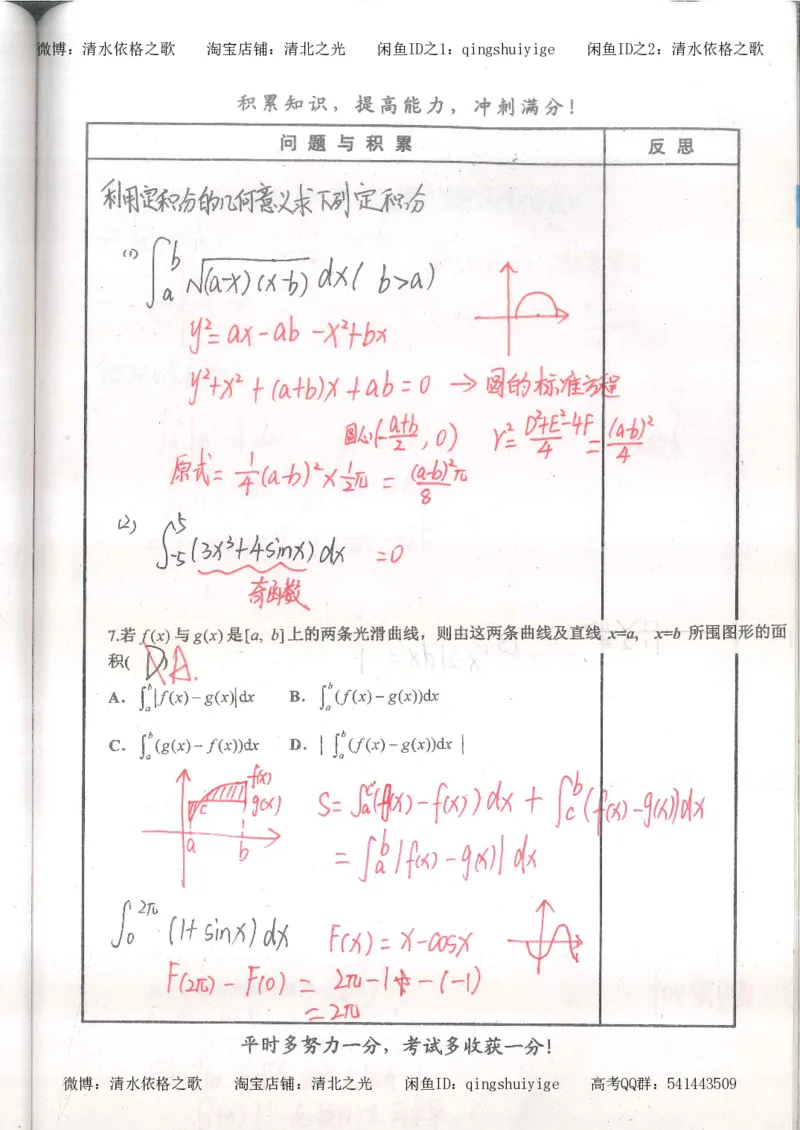 微博：清水依格之歌 淘宝店铺：清北之光 闲鱼ID之1：qingshuiyige 闲鱼ID之2：清水依格之歌
积累知识，提高能力，冲刺满分！
问题与积累 反思
利用定积分的几何意义求下列定积分
(1) ∫_a^b √(a-x)(x-b) dx ( b>a)
y²=ax-ab-x²+bx
y²+x²+(a+b)x+ab=0 → 圆的标准方程
圆心(-(a+b)/2, 0) r²=(D²+E²-4F)/4=(a-b)²/4
原式=1/4(a-b)²×1/2π=(a-b)²π/8
(2) ∫_-5^5 (3x³+4sinx)dx =0
奇函数
7.若 f(x) 与 g(x) 是[a, b]上的两条光滑曲线，则由这两条曲线及直线 x=a, x=b 所围图形的面
积( D ) A.
A. ∫_a^b |f(x)-g(x)|dx B. ∫_a^b (f(x)-g(x))dx
C. ∫_a^b (g(x)-f(x))dx D. | ∫_a^b (f(x)-g(x))dx |
f(x)
c g(x)
a b
S=∫_a^c (g(x)-f(x))dx+∫_c^b (f(x)-g(x))dx
=∫_a^b |f(x)-g(x)| dx
∫_0^2π (1+sinx)dx F(x)=x-cosx
F(2π)-F(0)=2π-1-(-1)
=2π
平时多努力一分，考试多收获一分！
微博：清水依格之歌 淘宝店铺：清北之光 闲鱼ID：qingshuiyige 高考QQ群：541443509